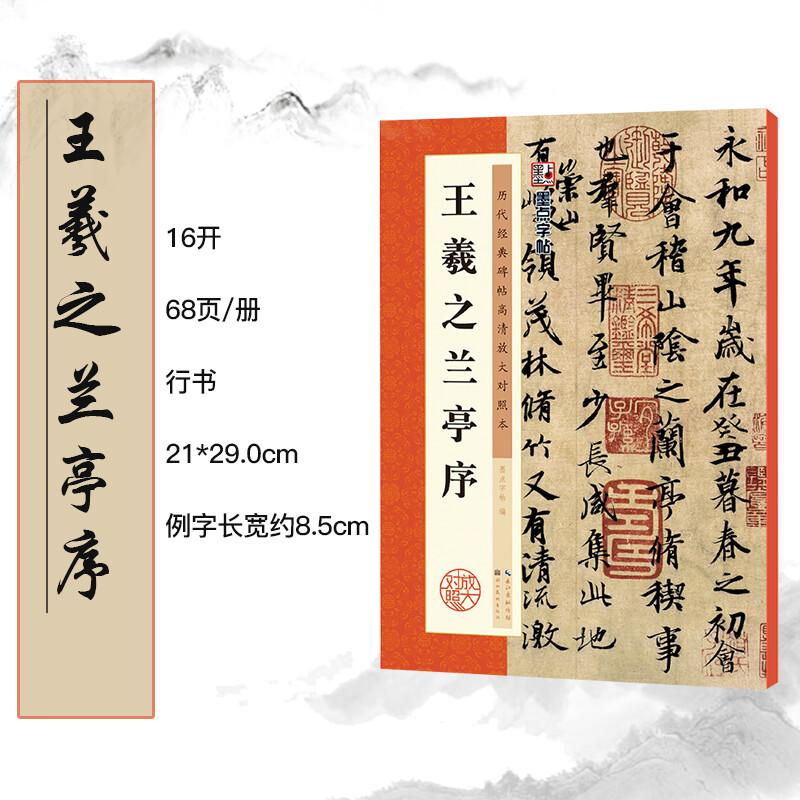 王羲之兰亭序
16开
68页/册
行书
21*29.0cm
例字长宽约8.5cm
历代经典碑帖高清放大对照本
王羲之兰亭序
墨点字帖 编
放大对照
墨点字帖
永和九年歲在癸丑暮春之初會
于會稽山陰之蘭亭脩稧事
也群賢畢至少長咸集此地
有
崇山
領茂林脩竹又有清流激